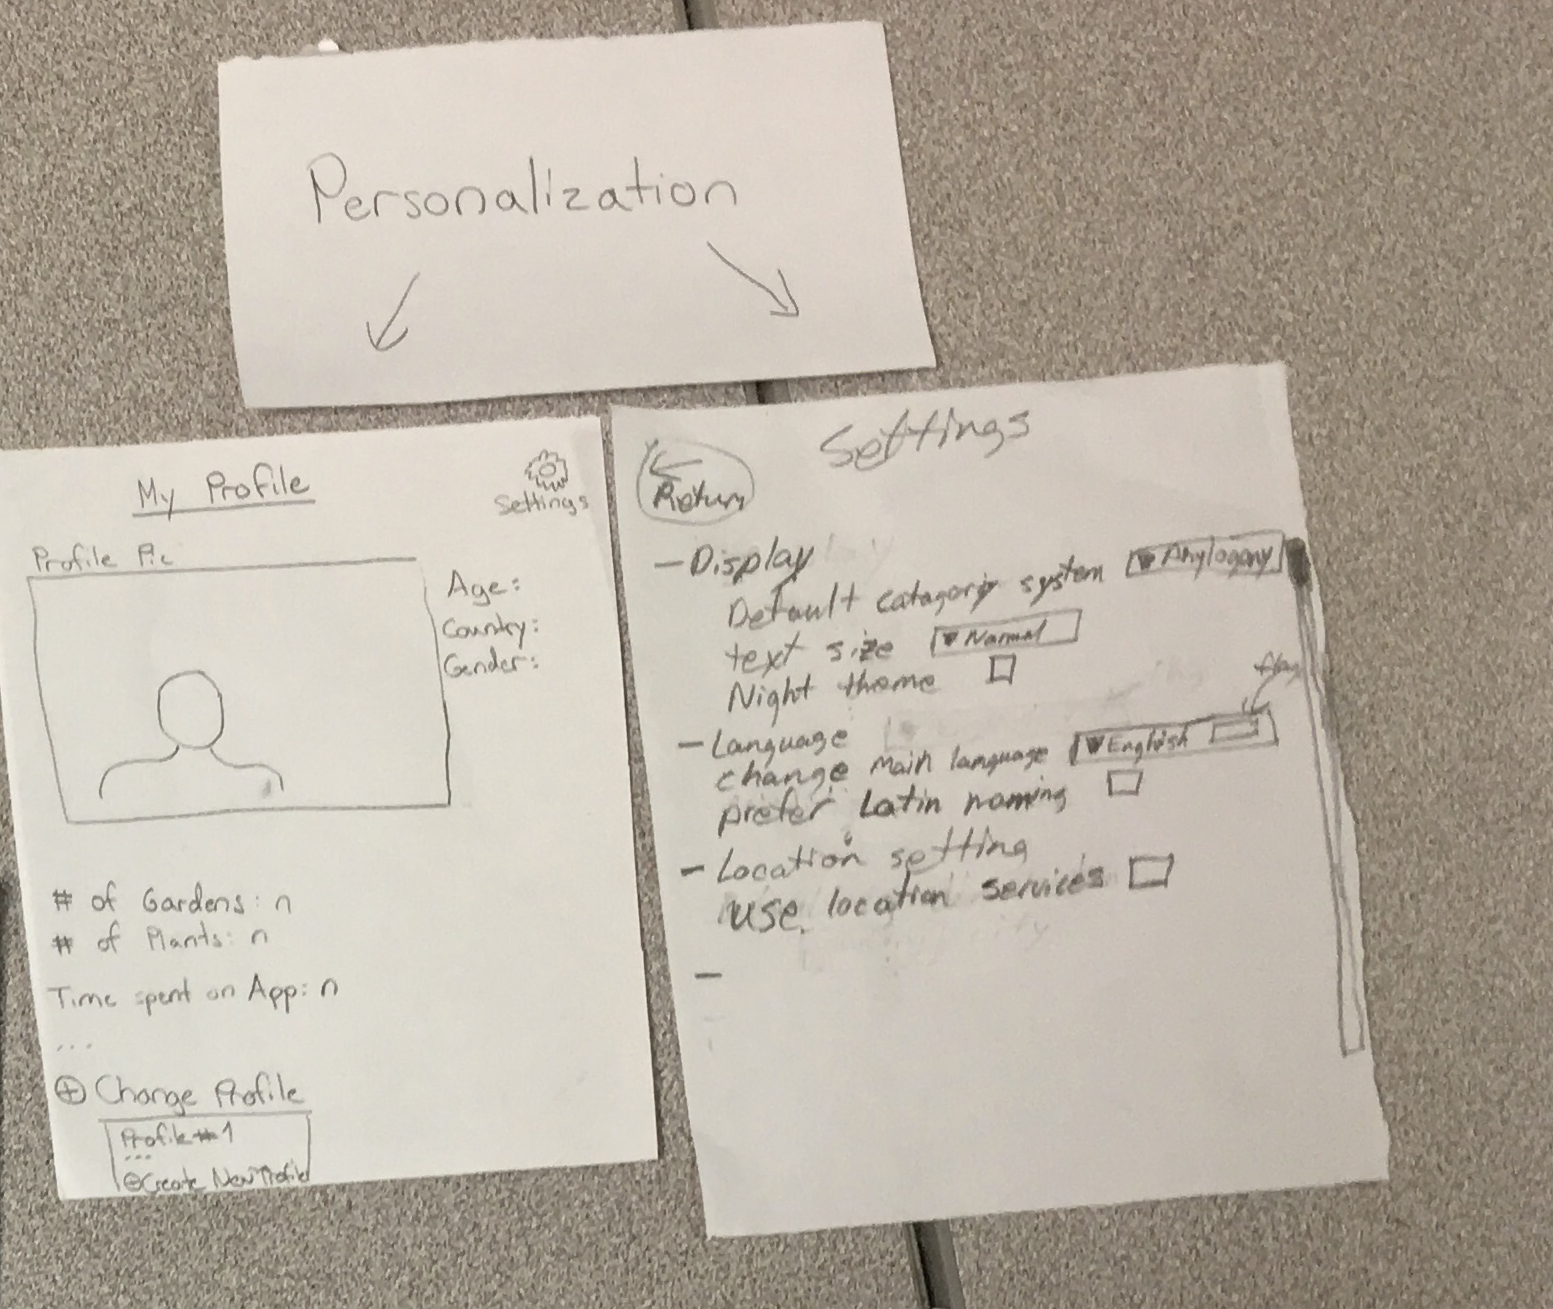 Personalization
My Profile
Settings
Profile Pic
Age:
Country:
Gender:
# of Gardens: n
# of Plants: n
Time spent on App: n
...
Change Profile
Profile #1
...
Create New Profile
Settings
Return
- Display
Default catagory system
text size Normal
Night theme
flag
- Language
change main language English
prefer Latin naming
- Location setting
use location services
-